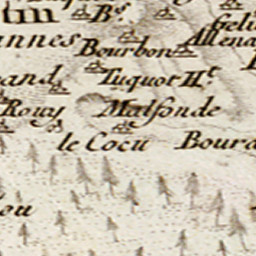 im B.
annes
Bourbon Allena
and Tuquot H.t
Rouy Malfonde
le Cocu Bourd
ou